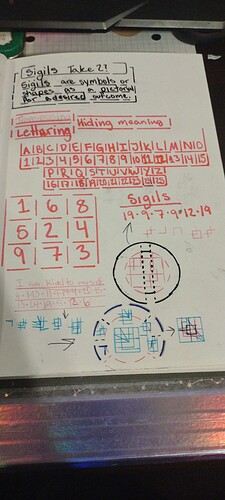 Sigils Take 2!
Sigils are symbols or
shapes as a pictoral
for a desired outcome.
Lettaring Hiding meaning
A B C D E F G H I J K L M N O
1 2 3 4 5 6 7 8 9 10 11 12 13 14 15
P Q R S T U V W X Y Z
16 17 18 19 20 21 22 23 24 25
Sigils
19·9·7·9·12·19
1 6 8
5 2 4
9 7 3
I am kind to myself